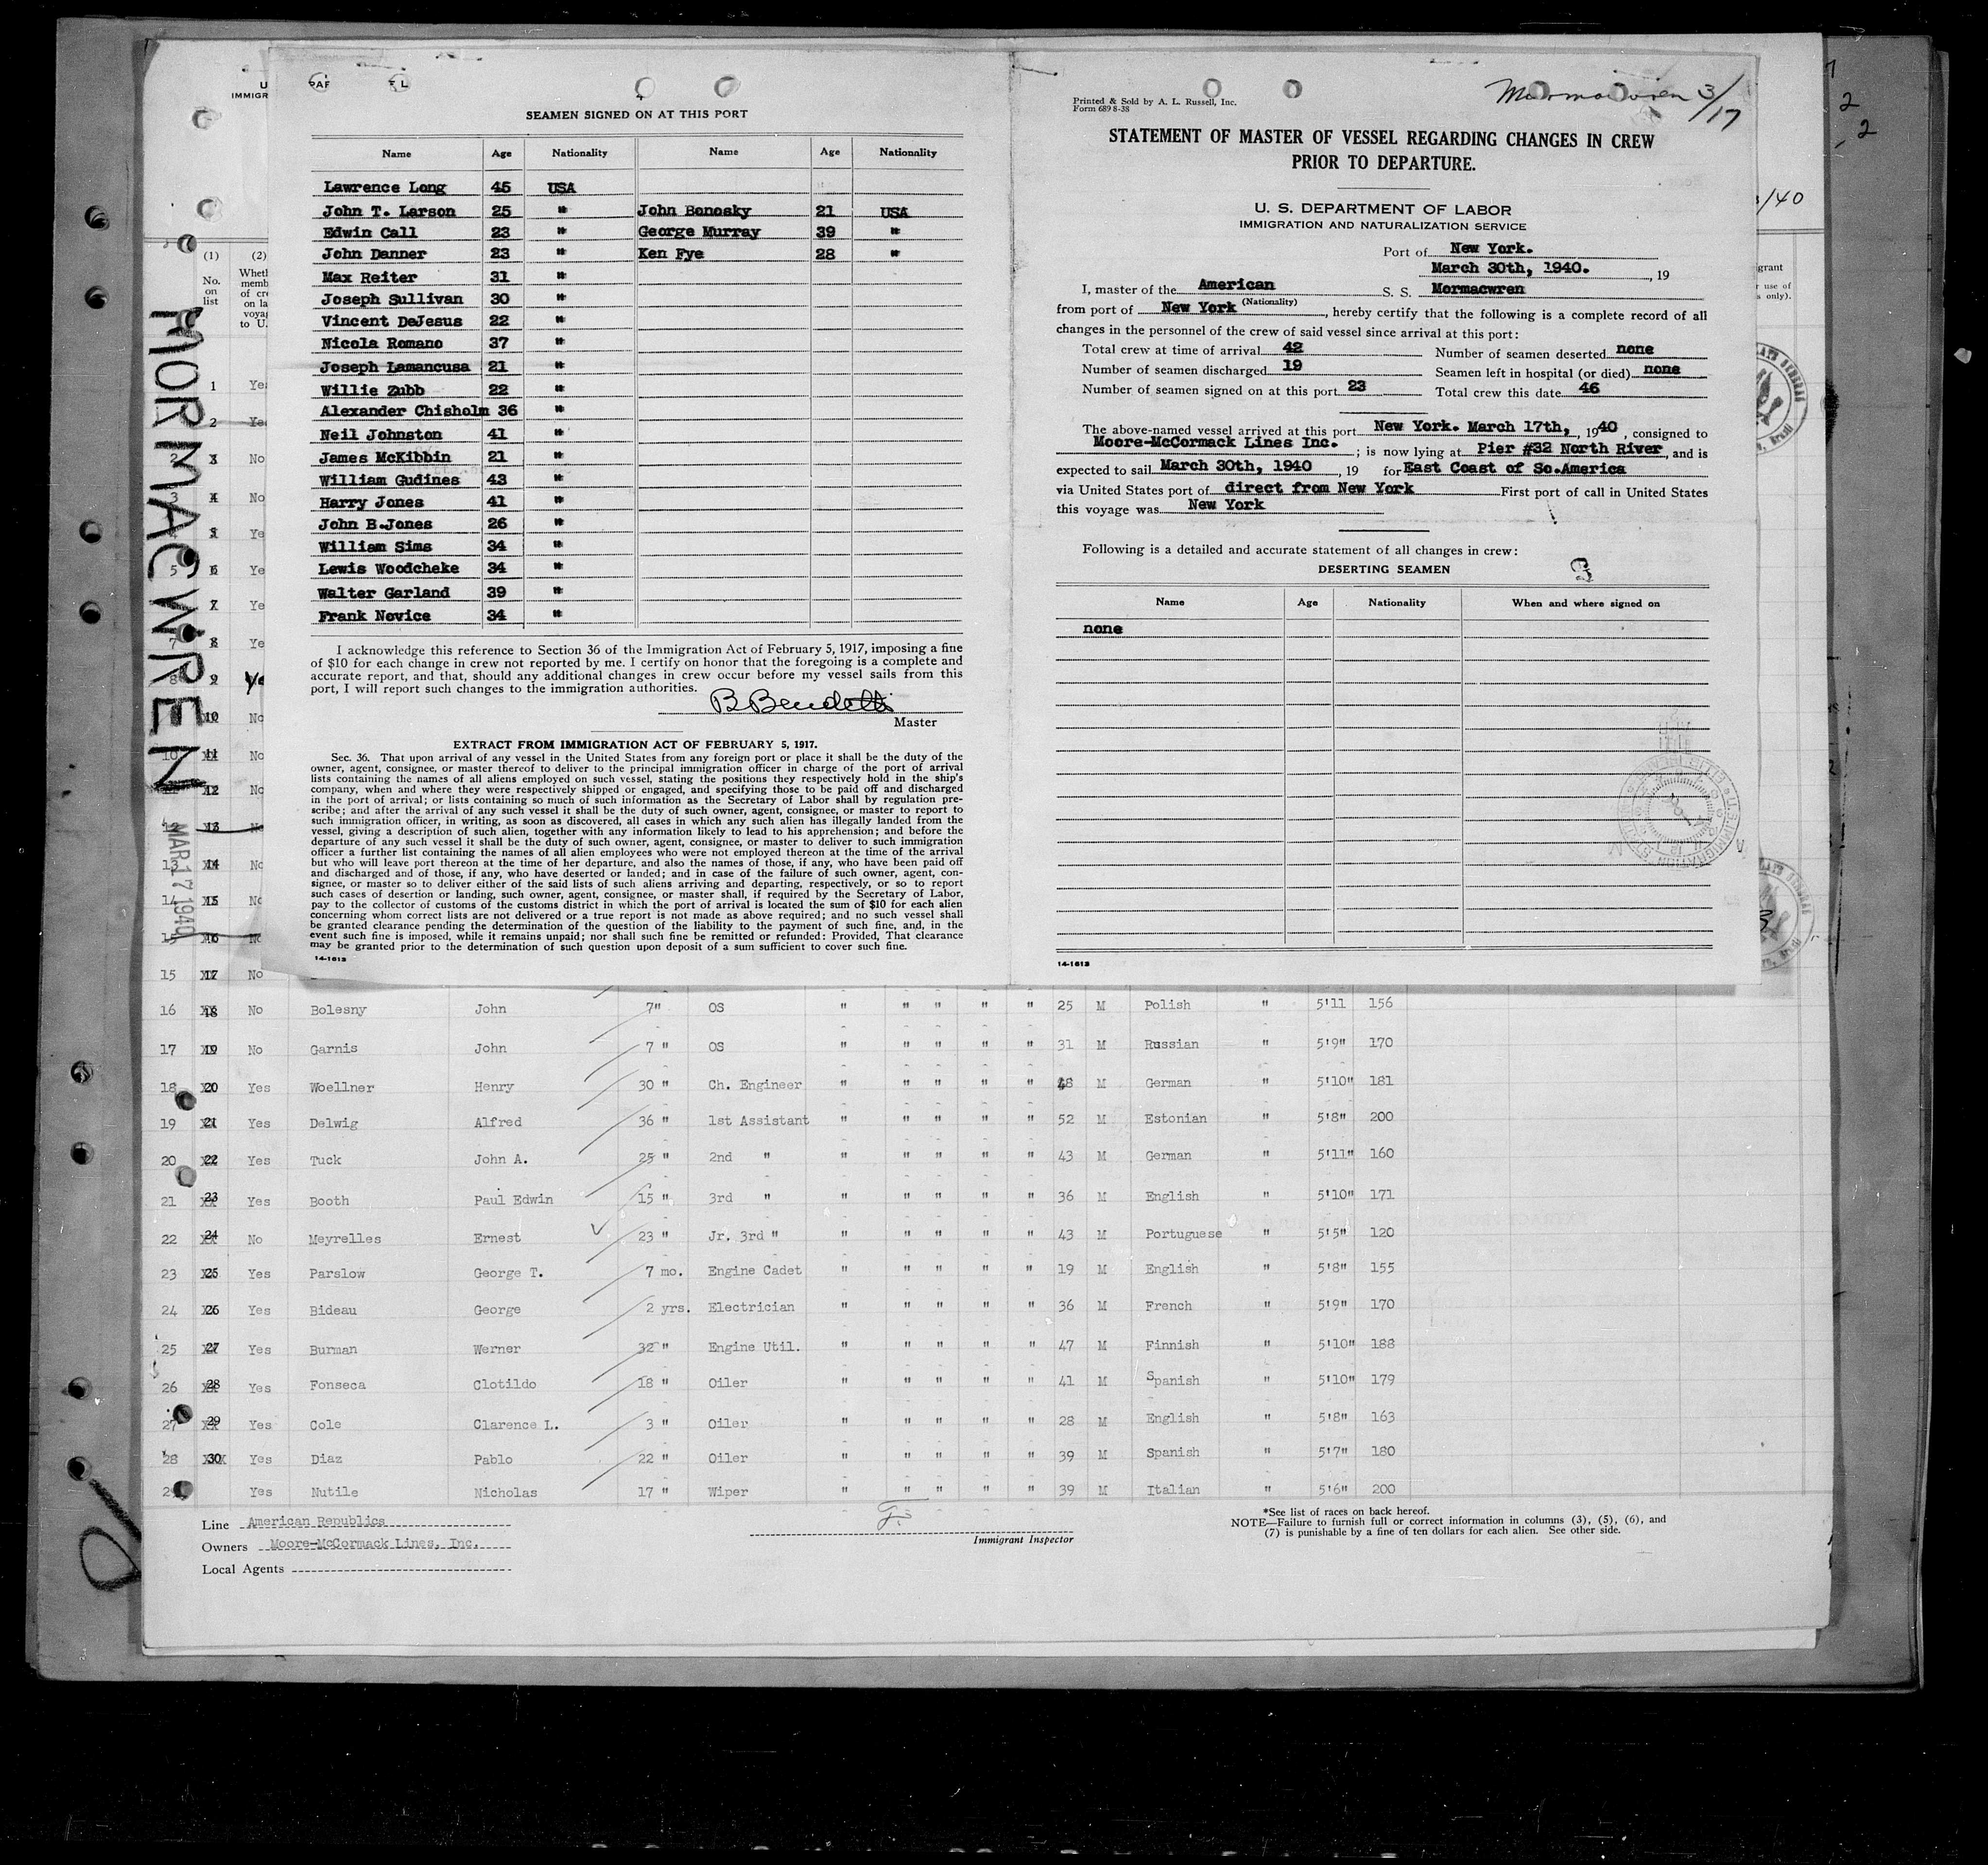 SEAMEN SIGNED ON AT THIS PORT
Name Age Nationality Name Age Nationality
Lawrence Long 45 USA
John T. Larson 25 " John Bonosky 21 USA
Edwin Call 23 " George Murray 39 "
John Danner 23 " Ken Fye 28 "
Max Reiter 31 "
Joseph Sullivan 30 "
Vincent DeJesus 22 "
Nicola Romano 37 "
Joseph Lamancusa 21 "
Willie Zubb 22 "
Alexander Chisholm 36 "
Neil Johnston 41 "
James McKibbin 21 "
William Gudines 43 "
Harry Jones 41 "
John B.Jones 26 "
William Sims 34 "
Lewis Woodcheke 34 "
Walter Garland 39 "
Frank Novice 34 "
I acknowledge this reference to Section 36 of the Immigration Act of February 5, 1917, imposing a fine
of $10 for each change in crew not reported by me. I certify on honor that the foregoing is a complete and
accurate report, and that, should any additional changes in crew occur before my vessel sails from this
port, I will report such changes to the immigration authorities.
Master
EXTRACT FROM IMMIGRATION ACT OF FEBRUARY 5, 1917.
Sec. 36. That upon arrival of any vessel in the United States from any foreign port or place it shall be the duty of the
owner, agent, consignee, or master thereof to deliver to the principal immigration officer in charge of the port of arrival
lists containing the names of all aliens employed on such vessel, stating the positions they respectively hold in the ship's
company, when and where they were respectively shipped or engaged, and specifying those to be paid off and discharged
in the port of arrival; or lists containing so much of such information as the Secretary of Labor shall by regulation pre-
scribe; and after the arrival of any such vessel it shall be the duty of such owner, agent, consignee, or master to report to
such immigration officer, in writing, as soon as discovered, all cases in which any such alien has illegally landed from the
vessel, giving a description of such alien, together with any information likely to lead to his apprehension; and before the
departure of any such vessel it shall be the duty of such owner, agent, consignee, or master to deliver to such immigration
officer a further list containing the names of all alien employees who were not employed thereon at the time of the arrival
but who will leave port thereon at the time of her departure, and also the names of those, if any, who have been paid off
and discharged and of those, if any, who have deserted or landed; and in case of the failure of such owner, agent, con-
signee, or master so to deliver either of the said lists of such aliens arriving and departing, respectively, or so to report
such cases of desertion or landing, such owner, agent, consignee, or master shall, if required by the Secretary of Labor,
pay to the collector of customs of the customs district in which the port of arrival is located the sum of $10 for each alien
concerning whom correct lists are not delivered or a true report is not made as above required; and no such vessel shall
be granted clearance pending the determination of the question of the liability to the payment of such fine, and, in the
event such fine is imposed, while it remains unpaid; nor shall such fine be remitted or refunded: Provided, That clearance
may be granted prior to the determination of such question upon deposit of a sum sufficient to cover such fine.
14-1613
Printed & Sold by A. L. Russell, Inc.
Form 689 8-38
Mormacwren 3/17
STATEMENT OF MASTER OF VESSEL REGARDING CHANGES IN CREW
PRIOR TO DEPARTURE.
U. S. DEPARTMENT OF LABOR
IMMIGRATION AND NATURALIZATION SERVICE
Port of New York.
March 30th, 1940. , 19
I, master of the American S. S. Mormacwren
(Nationality)
from port of New York , hereby certify that the following is a complete record of all
changes in the personnel of the crew of said vessel since arrival at this port:
Total crew at time of arrival 42 Number of seamen deserted none
Number of seamen discharged 19 Seamen left in hospital (or died) none
Number of seamen signed on at this port 23 Total crew this date 46
The above-named vessel arrived at this port New York. March 17th, , 1940 , consigned to
Moore-McCormack Lines Inc. ; is now lying at Pier #32 North River , and is
expected to sail March 30th, 1940 , 19 for East Coast of So.America
via United States port of direct from New York First port of call in United States
this voyage was New York
Following is a detailed and accurate statement of all changes in crew:
DESERTING SEAMEN
Name Age Nationality When and where signed on
none
14-1613
MORMACWREN
MAR 17 1940
16 18 No Bolesny John 7" OS " " " " " 25 M Polish " 5'11 156
17 19 No Garnis John 7 " OS " " " " " 31 M Russian " 5'9" 170
18 20 Yes Woellner Henry 30 " Ch. Engineer " " " " " 48 M German " 5'10" 181
19 21 Yes Delwig Alfred 36 " 1st Assistant " " " " " 52 M Estonian " 5'8" 200
20 22 Yes Tuck John A. 25 " 2nd " " " " " " 43 M German " 5'11" 160
21 23 Yes Booth Paul Edwin 15 " 3rd " " " " " " 36 M English " 5'10" 171
22 24 No Meyrelles Ernest 23 " Jr. 3rd " " " " " " 43 M Portuguese " 5'5" 120
23 25 Yes Parslow George T. 7 mo. Engine Cadet " " " " " 19 M English " 5'8" 155
24 26 Yes Bideau George 2 yrs. Electrician " " " " " 36 M French " 5'9" 170
25 27 Yes Burman Werner 32 " Engine Util. " " " " " 47 M Finnish " 5'10" 188
26 28 Yes Fonseca Clotildo 18 " Oiler " " " " " 41 M Spanish " 5'10" 179
27 29 Yes Cole Clarence L. 3 " Oiler " " " " " 28 M English " 5'8" 163
28 30 Yes Diaz Pablo 22 " Oiler " " " " " 39 M Spanish " 5'7" 180
Yes Nutile Nicholas 17 " Wiper " " " " " 39 M Italian " 5'6" 200
Line American Republics
Owners Moore-McCormack Lines, Inc.
Local Agents
Immigrant Inspector
*See list of races on back hereof.
NOTE—Failure to furnish full or correct information in columns (3), (5), (6), and
(7) is punishable by a fine of ten dollars for each alien. See other side.